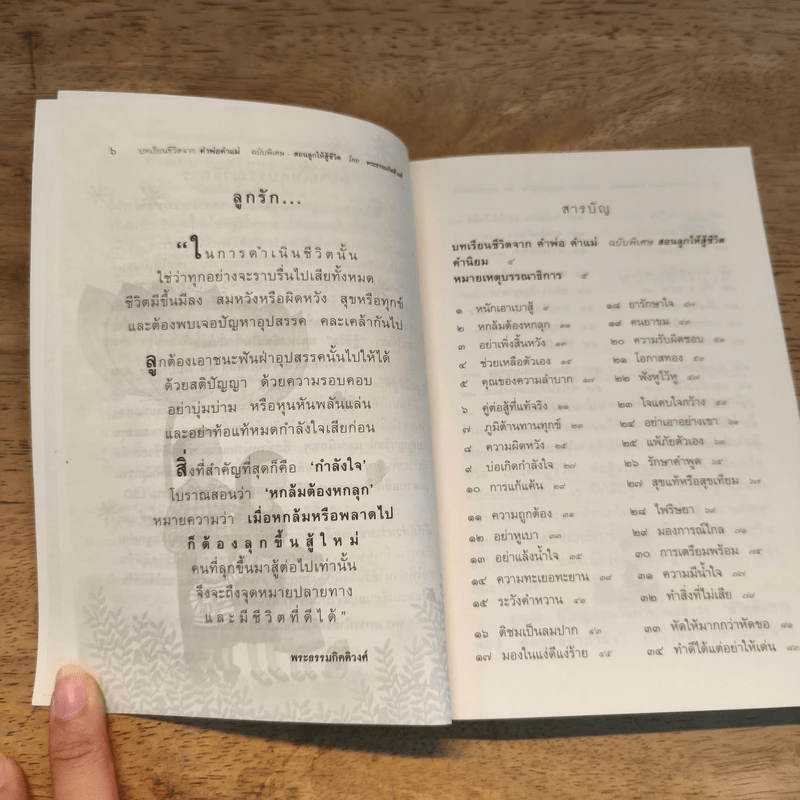 ๖ บทเรียนชีวิตจาก คำพ่อคำแม่ ฉบับพิเศษ - สอนลูกให้สู้ชีวิต โดย - พระธรรมกิตติวงศ์
ลูกรัก...
“ในการดำเนินชีวิตนั้น
ใช่ว่าทุกอย่างจะราบรื่นไปเสียทั้งหมด
ชีวิตมีขึ้นมีลง สมหวังหรือผิดหวัง สุขหรือทุกข์
และต้องพบเจอปัญหาอุปสรรค คละเคล้ากันไป
ลูกต้องเอาชนะฟันฝ่าอุปสรรคนั้นไปให้ได้
ด้วยสติปัญญา ด้วยความรอบคอบ
อย่าบุ่มบ่าม หรือหุนหันพลันแล่น
และอย่าท้อแท้หมดกำลังใจเสียก่อน
สิ่งที่สำคัญที่สุดก็คือ ‘กำลังใจ’
โบราณสอนว่า ‘หกล้มต้องหกลุก’
หมายความว่า เมื่อหกล้มหรือพลาดไป
ก็ต้องลุกขึ้นสู้ใหม่
คนที่ลุกขึ้นมาสู้ต่อไปเท่านั้น
จึงจะถึงจุดหมายปลายทาง
และมีชีวิตที่ดีได้”
พระธรรมกิตติวงศ์
สารบัญ
บทเรียนชีวิตจาก คำพ่อ คำแม่ ฉบับพิเศษ สอนลูกให้สู้ชีวิต
คำนิยม ๔
หมายเหตุบรรณาธิการ ๕
๑ หนักเอาเบาสู้ ๙
๒ หกล้มต้องหกลุก ๑๑
๓ อย่าเพิ่งสิ้นหวัง ๑๓
๔ ช่วยเหลือตัวเอง ๑๕
๕ คุณของความลำบาก ๑๗
๖ คู่ต่อสู้ที่แท้จริง ๒๑
๗ ภูมิต้านทานทุกข์ ๒๓
๘ ความผิดหวัง ๒๕
๙ บ่อเกิดกำลังใจ ๒๗
๑๐ การแก้แค้น ๒๙
๑๑ ความถูกต้อง ๓๑
๑๒ อย่าหูเบา ๓๓
๑๓ อย่าแล้งน้ำใจ ๓๕
๑๔ ความทะเยอทะยาน ๓๙
๑๕ ระวังคำหวาน ๔๑
๑๖ ติชมเป็นลมปาก ๔๓
๑๗ มองในแง่ดีแง่ร้าย ๔๕
๑๘ ยารักษาใจ ๔๗
๑๙ คนยาขม ๔๙
๒๐ ความรับผิดชอบ ๕๑
๒๑ โอกาสทอง ๕๓
๒๒ ฟังหูไว้หู ๕๕
๒๓ ใจแคบใจกว้าง ๕๗
๒๔ อย่าเอาอย่างเขา ๖๑
๒๕ แพ้ภัยตัวเอง ๖๓
๒๖ รักษาคำพูด ๖๕
๒๗ สุขแท้หรือสุขเทียม ๖๗
๒๘ ไพริษยา
๒๙ มองการณ์ไกล ๗๑
๓๐ การเตรียมพร้อม ๗๕
๓๑ ความมีน้ำใจ ๗๗
๓๒ ทำสิ่งที่ไม่เสีย ๗๙
๓๓ หัดให้มากกว่าหัดขอ ๘๑
๓๔ ทำดีได้แต่อย่าให้เด่น